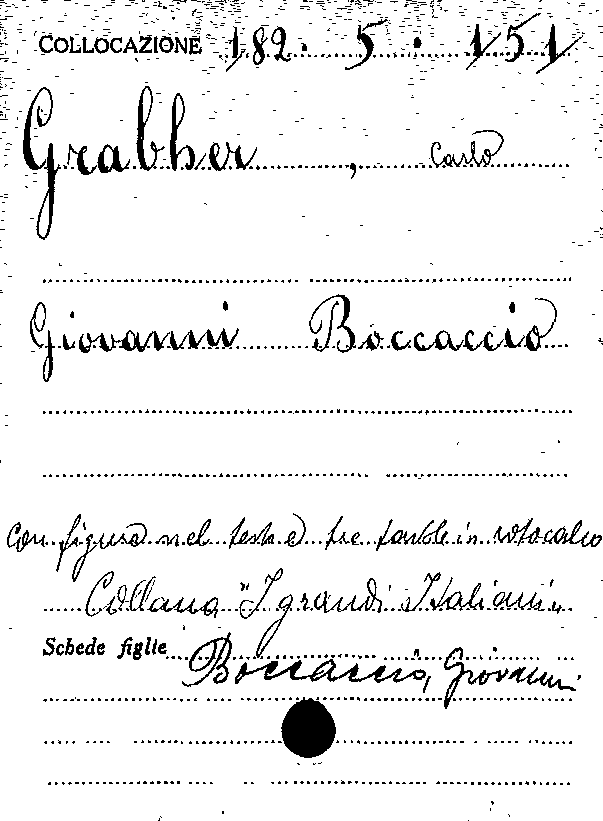 COLLOCAZIONE 182. 5. 151
Grabher, Carlo
Giovanni Boccaccio
Con figure nel testo e tre tavole in rotocalco
Collana "I grandi Italiani"
Schede figlie Boccaccio, Giovanni